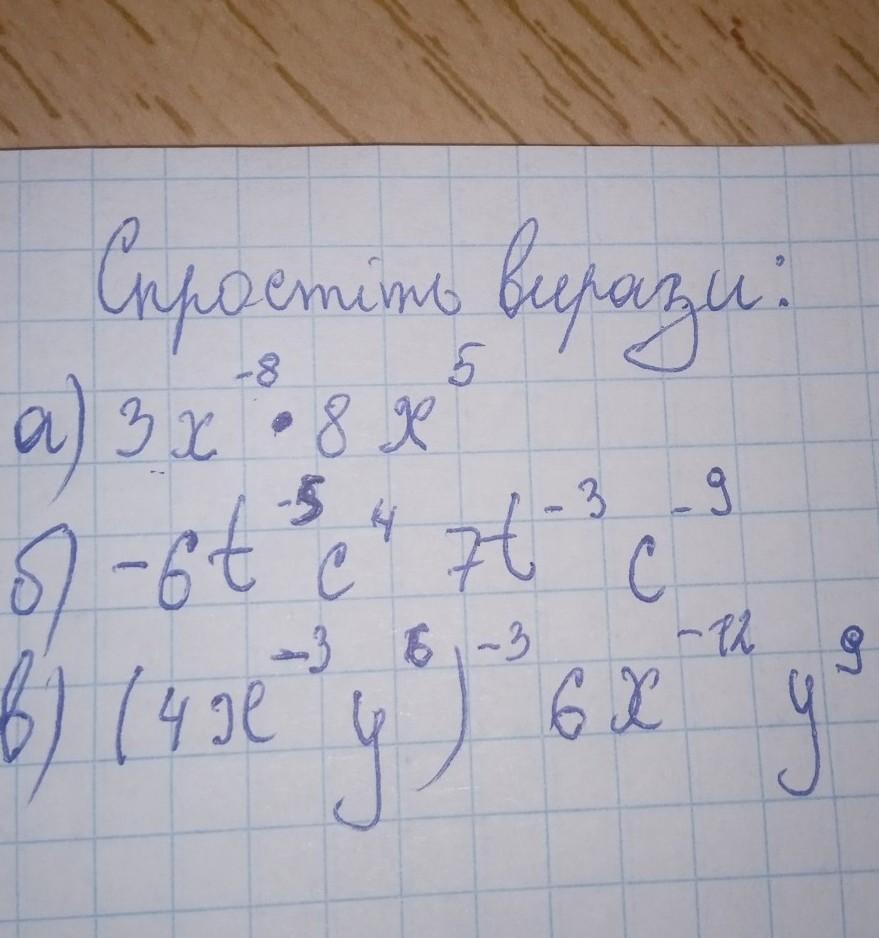 Спростіть вирази:
а) 3x⁻⁸ • 8x⁵
б) -6t⁻⁵c⁴ 7t⁻³ c⁻⁹
в) (4x⁻³ y⁶)⁻³ 6x⁻¹² y⁹